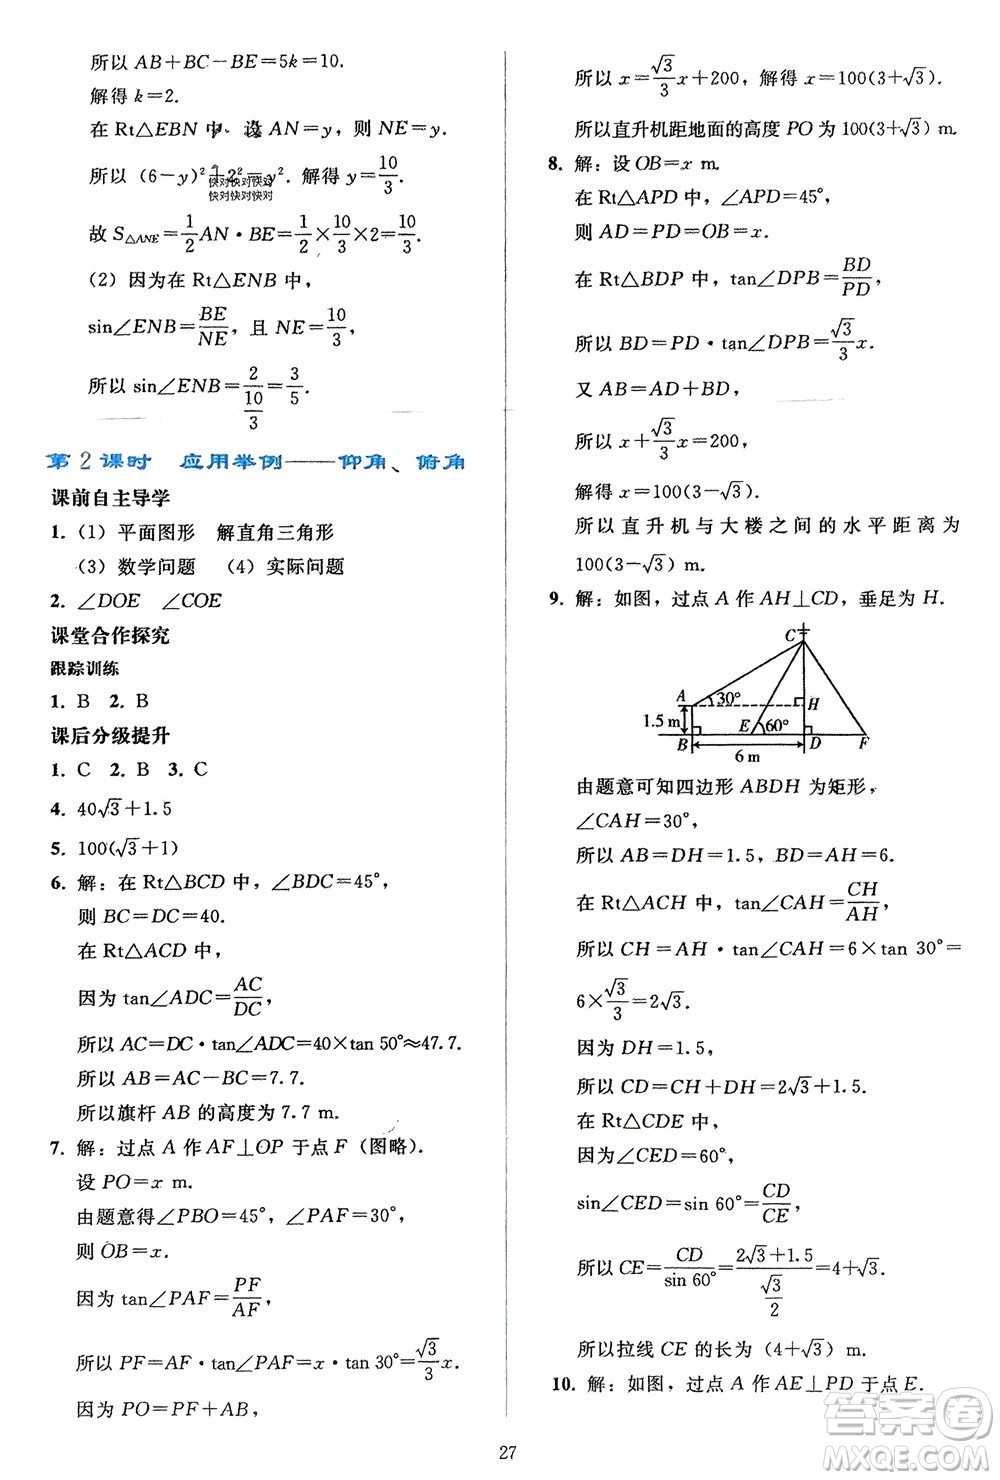 所以 AB+BC−BE=5k=10.
解得 k=2.
在 Rt△EBN 中，设 AN=y，则 NE=y.
所以 (6−y)²+2²=y². 解得 y=10/3.
快对快对快对
快对快对快对
故 S△ANE=1/2 AN·BE=1/2×10/3×2=10/3.
(2) 因为在 Rt△ENB 中，
sin∠ENB=BE/NE，且 NE=10/3，
所以 sin∠ENB=2/(10/3)=3/5.
第2课时 应用举例——仰角、俯角
课前自主导学
1. (1) 平面图形 解直角三角形
(3) 数学问题 (4) 实际问题
2. ∠DOE ∠COE
课堂合作探究
跟踪训练
1. B 2. B
课后分级提升
1. C 2. B 3. C
4. 40√3+1.5
5. 100(√3+1)
6. 解：在 Rt△BCD 中，∠BDC=45°，
则 BC=DC=40.
在 Rt△ACD 中，
因为 tan∠ADC=AC/DC，
所以 AC=DC·tan∠ADC=40×tan 50°≈47.7.
所以 AB=AC−BC=7.7.
所以旗杆 AB 的高度为 7.7 m.
7. 解：过点 A 作 AF⊥OP 于点 F (图略).
设 PO=x m.
由题意得∠PBO=45°，∠PAF=30°，
则 OB=x.
因为 tan∠PAF=PF/AF，
所以 PF=AF·tan∠PAF=x·tan 30°=√3/3 x.
因为 PO=PF+AB，
所以 x=√3/3 x+200，解得 x=100(3+√3).
所以直升机距地面的高度 PO 为 100(3+√3) m.
8. 解：设 OB=x m.
在 Rt△APD 中，∠APD=45°，
则 AD=PD=OB=x.
在 Rt△BDP 中，tan∠DPB=BD/PD，
所以 BD=PD·tan∠DPB=√3/3 x.
又 AB=AD+BD，
所以 x+√3/3 x=200，
解得 x=100(3−√3).
所以直升机与大楼之间的水平距离为
100(3−√3) m.
9. 解：如图，过点 A 作 AH⊥CD，垂足为 H.
C
A 30° H
1.5 m E 60°
B D F
6 m
由题意可知四边形 ABDH 为矩形，
∠CAH=30°，
所以 AB=DH=1.5，BD=AH=6.
在 Rt△ACH 中，tan∠CAH=CH/AH，
所以 CH=AH·tan∠CAH=6×tan 30°=
6×√3/3=2√3.
因为 DH=1.5，
所以 CD=CH+DH=2√3+1.5.
在 Rt△CDE 中，
因为∠CED=60°，
sin∠CED=sin 60°=CD/CE，
所以 CE=CD/sin 60°=(2√3+1.5)/(√3/2)=4+√3.
所以拉线 CE 的长为 (4+√3) m.
10. 解：如图，过点 A 作 AE⊥PD 于点 E.
27
答案圈
MXQE.COM